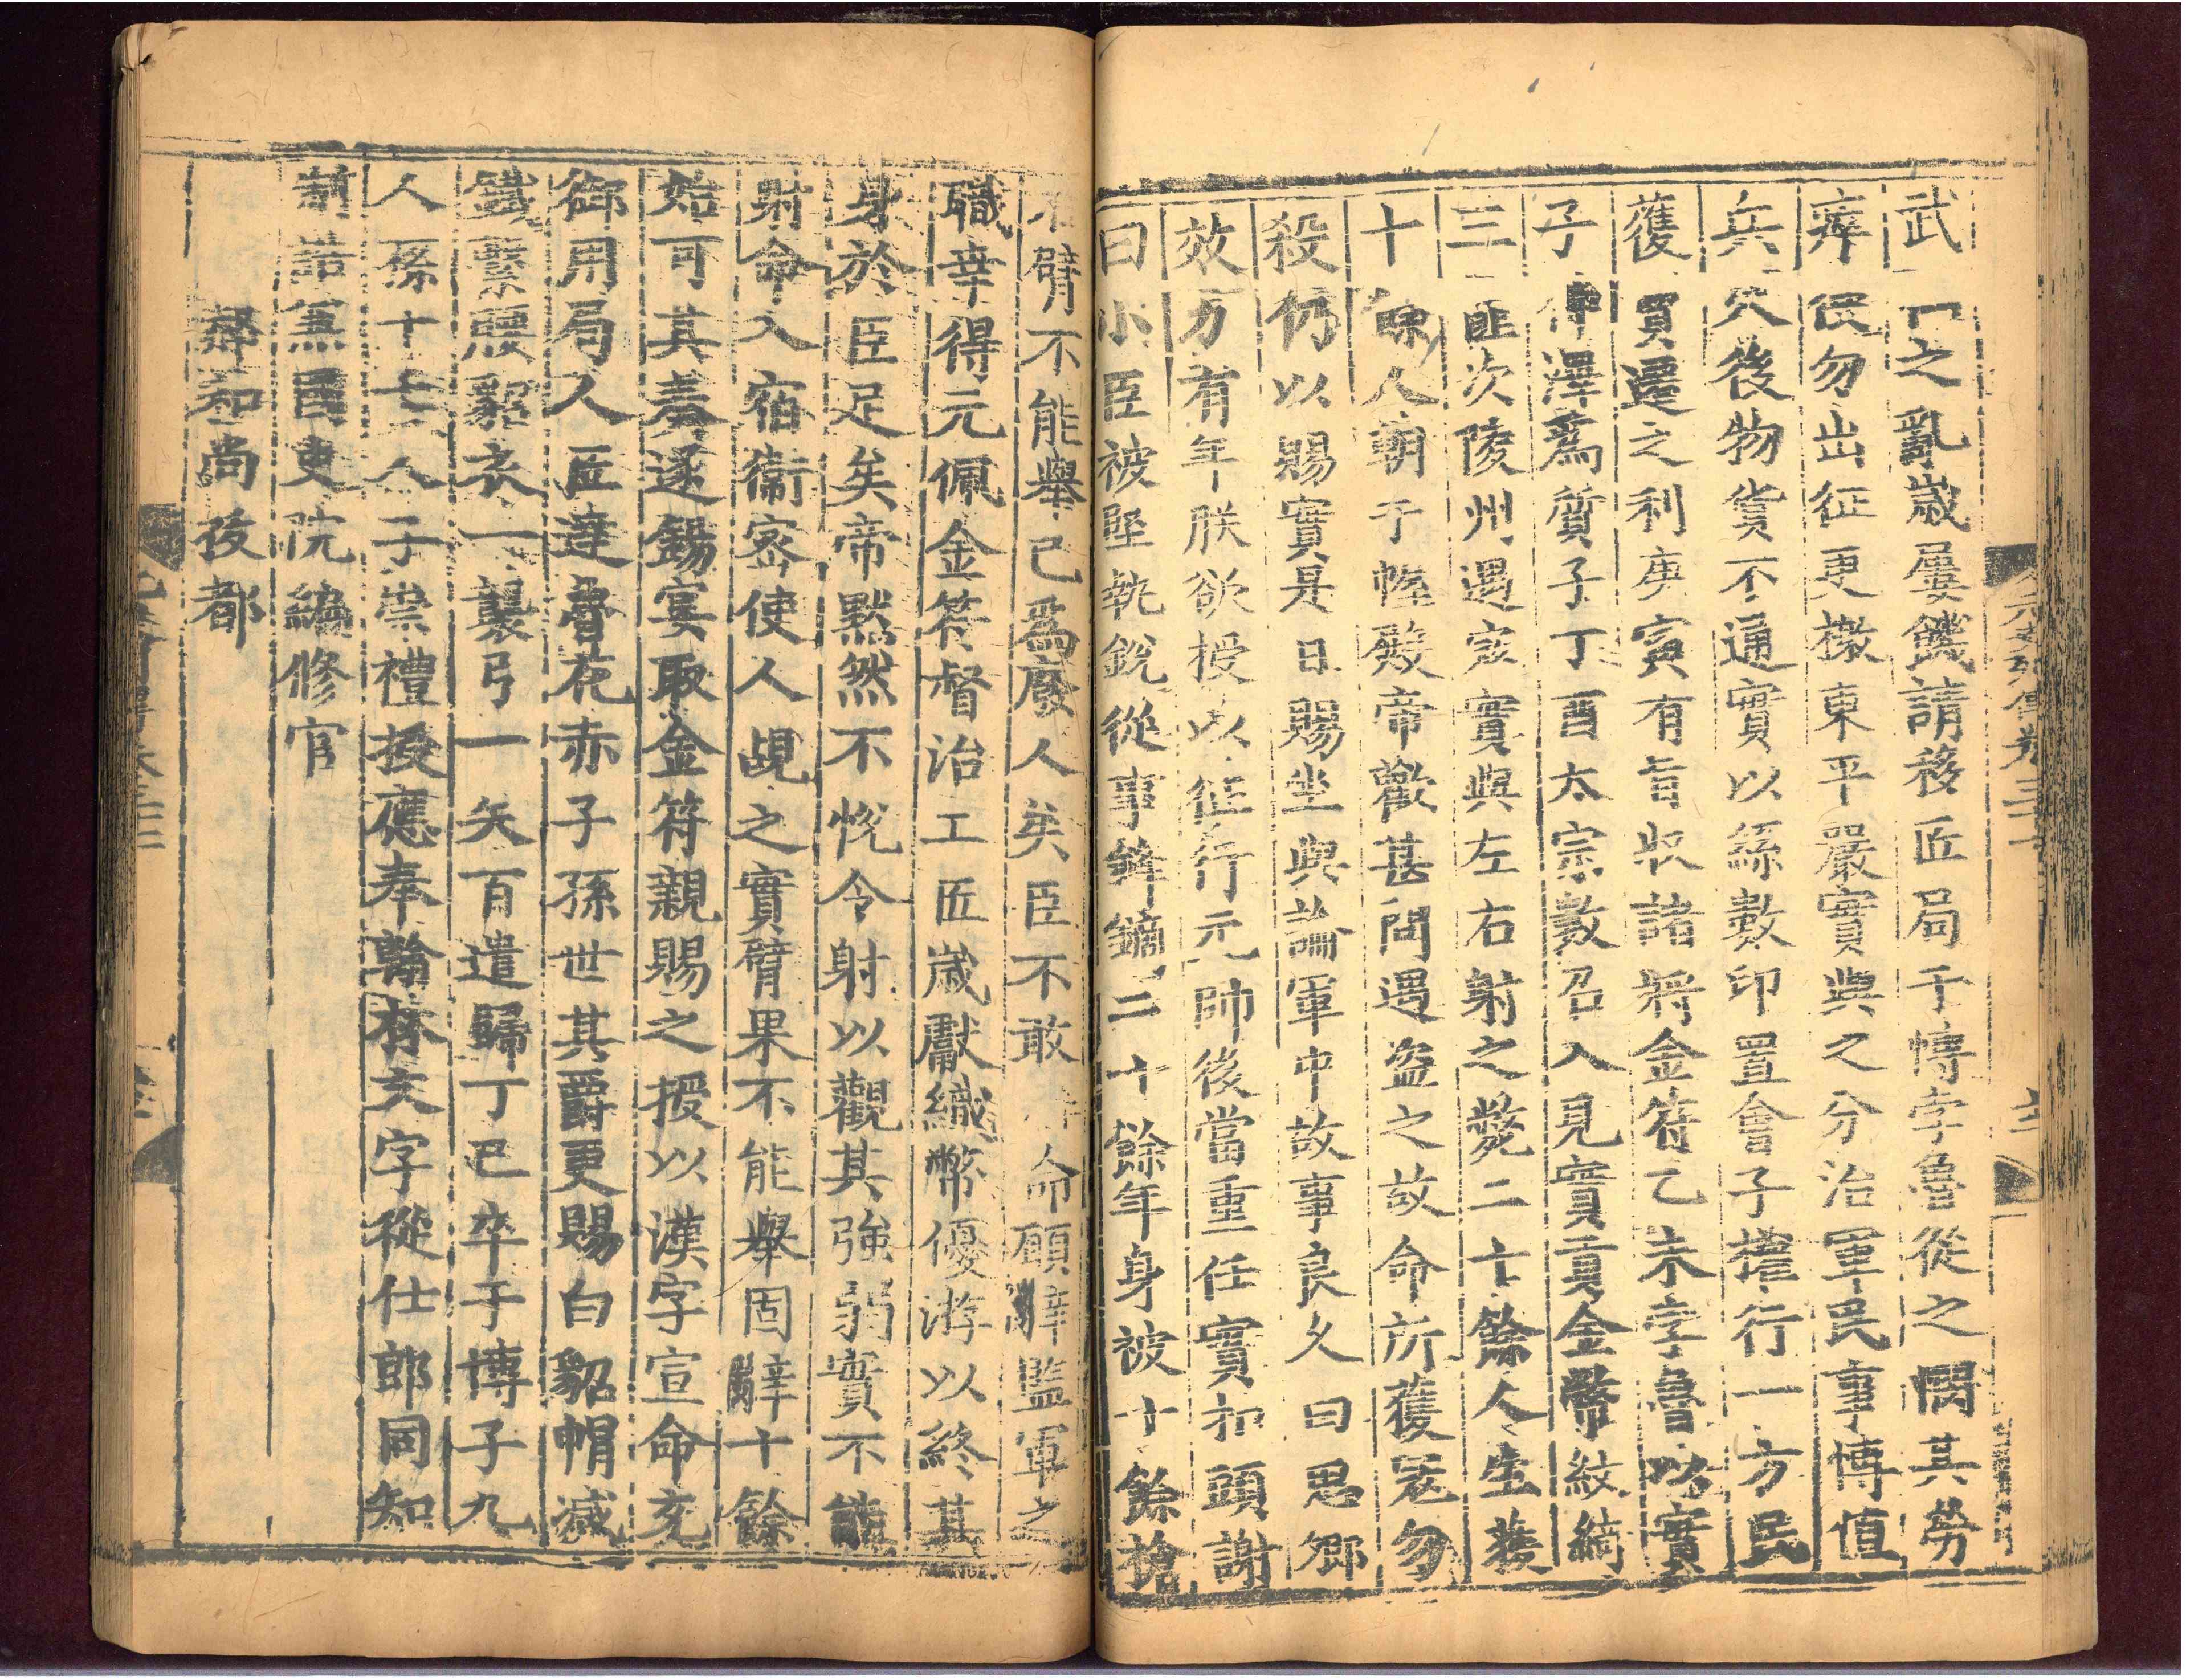 武之亂歲屢饑請移匠局于博孛魯從之閔其勞
瘁民勿出征更檄東平嚴實與之分治軍民事博值
兵火後物貨不通實以絲數印置會子權行一方民
獲貿遷之利庚寅有旨收諸將金符乙未孛魯以實
子仲澤爲質子丁酉太宗數召入見實貢金幣紋綺
三匪次陵州遇寇實與左右射之斃二十餘人生獲
十餘人朝于幄殿帝歡甚問遇盜之故命所獲寇勿
殺仍以賜實是日賜坐與論軍中故事良久曰思卿
效力有年朕欲授以征行元帥後當重任實扣頭謝
曰小臣被堅執銳從事鋒鏑二十餘年身被十餘搶
右臂不能舉已爲廢人矣臣不敢命願辭監軍之
職幸得元佩金符督治工匠歲獻織幣優游以終其
身於臣足矣帝默然不悅令射以觀其強弱實不能
射命入宿衞密使人覘之實臂果不能舉固辭十餘
始可其奏遂錫宴取金符親賜之授以漢字宣命充
御用局人匠達魯花赤子孫世其爵更賜白貂帽减
鐵繫腰貂衣一襲弓一矢百遣歸丁巳卒子博子九
人孫十七人子崇禮授應奉翰林文字從仕郎同知
制誥兼國史院編修官
和尚 孜都